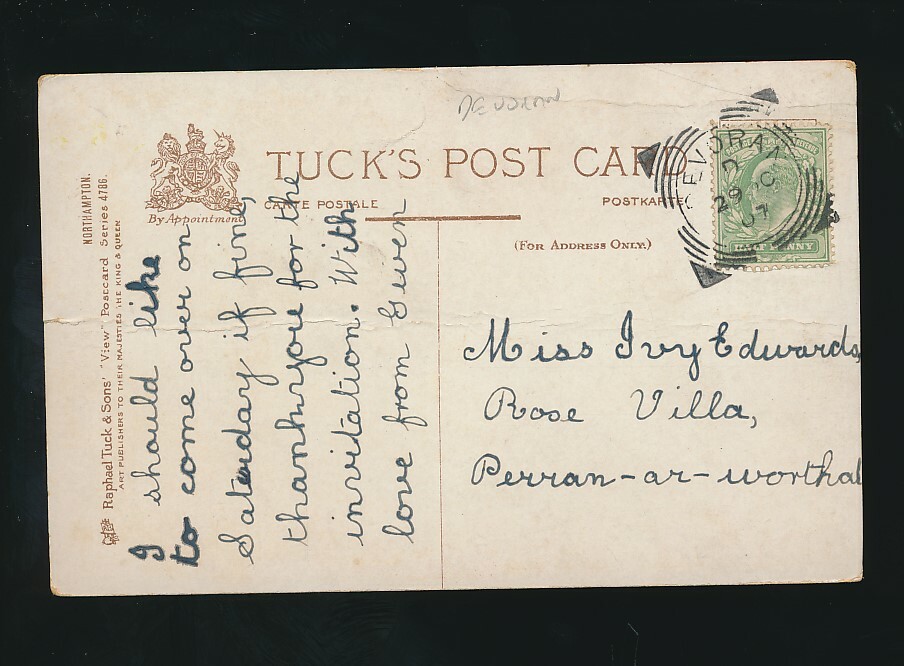 DEVORAN
NORTHAMPTON.
Raphael Tuck & Sons' "View" Postcard Series 4786.
ART PUBLISHERS TO THEIR MAJESTIES THE KING & QUEEN
By Appointment
TUCK'S POST CARD
CARTE POSTALE
POSTKARTE
(FOR ADDRESS ONLY.)
DEVORAN
D
29 OC
07
HALF PENNY
I should like
to come over on
Saturday if fine,
thankyou for the
invitation. With
love from Gwen
Miss Ivy Edwards,
Rose Villa,
Perran-ar-worthal